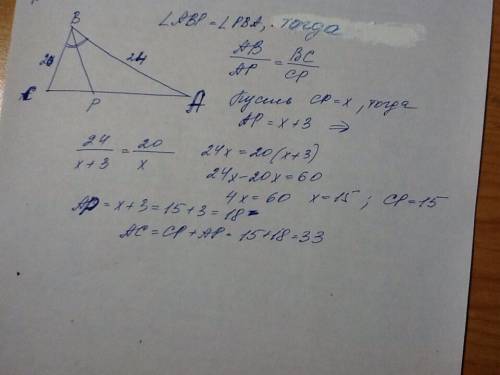 B
20
24
C
P
A
∠ABP = ∠PBA, тогда
AB/AP = BC/CP
Пусть CP = x, тогда
AP = x + 3 ⇒
24/(x+3) = 20/x
24x = 20(x+3)
24x - 20x = 60
4x = 60 x = 15 ; CP = 15
AP = x + 3 = 15 + 3 = 18
AC = CP + AP = 15 + 18 = 33